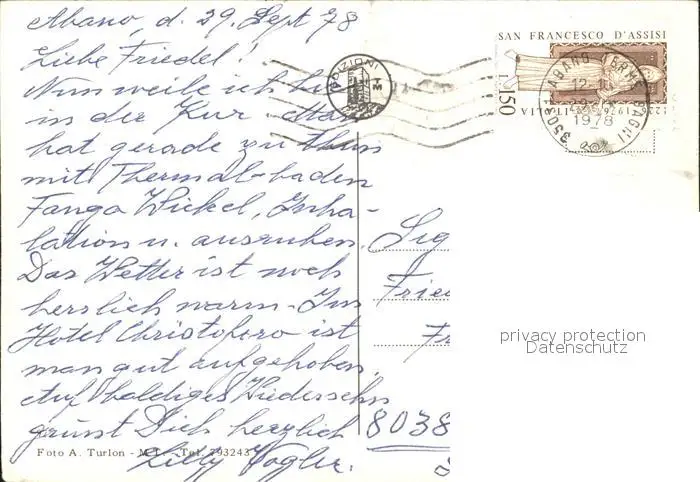 Abano, d. 29. Sept 78
Liebe Friedel!
Nun weile ich hier
in der Kur. Man
hat gerade zu thun
mit Thermal-baden
Fango Wickel, Inha-
lation u. ausruhen.
Das Wetter ist noch
herrlich warm. Im
Hotel Christoforo ist
man gut aufgehoben.
Auf baldiges Wiedersehn
grüsst Dich herzlich
Lilly Vogler.
Foto A. Turlon - Tel. 793243
EDIZIONI
SAN FRANCESCO D'ASSISI
L. 150
ITALIA
35031 ABANO TERME BAGNI
1978
Sig
Frie
Fr
8038
privacy protection
Datenschutz